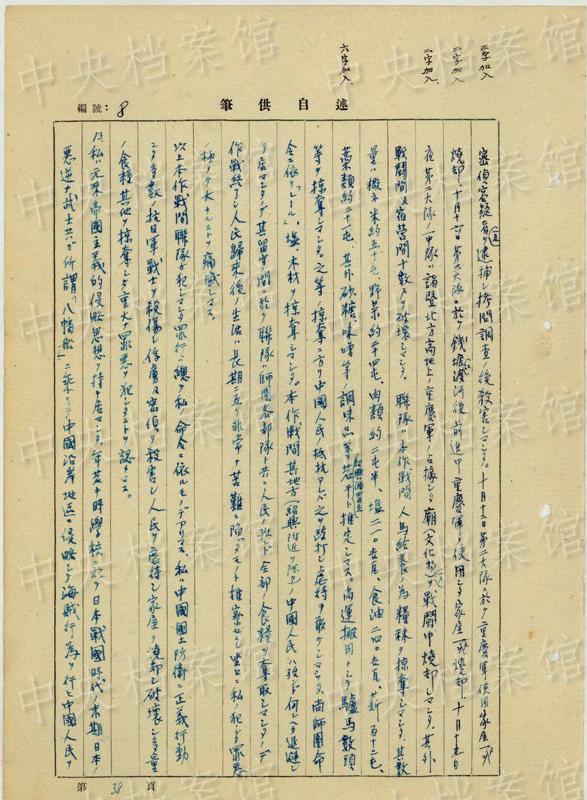 二字加入
二字加入
一字加入
六字加入
述自供筆
編號：8
密偵容疑者ヲ逮捕シ拷問調査ノ後殺害シマシタ。十月十二日第二大隊ニ於テ重慶軍使用家屋一
焼却、十月十六日第二大隊ニ於テ錢塘渡河後前進中重慶軍ノ使用シタ家屋一焼却、十月十七日
夜第二大隊ノ一中隊ハ諸暨北方高地上ノ重慶軍ノ占據シタ廟(文化物)ヲ戰鬪中焼却シマシタ。其外
戰鬪間及宿營間十數戸ヲ破壊シマシタ。聯隊ハ本作戰間人馬給養ノ為糧秣ヲ掠奪シマシタ。其数
量ハ概ネ米約五十屯、野菜約四十屯、肉類約二屯半、塩
葉類約二十一屯、其外砂糖、味噌等調味品等若干ト推定シマス。尚運搬用トシテ驢馬数頭
等ヲ掠奪シマシタ。之等ノ掠奪ニ方リ中國人民抵抗スレバ之ヲ毆打シ虐待ヲ敢テシマシタ。尚師團命
令ニ依リ「レール」、塩、木材ヲ掠奪シマシタ。本作戰間其地方(紹興附近ヲ除ク)ノ中國人民ハ殆ンド何レモ退避シ
テ居マシタガ其留守間ニ於テ聯隊ハ師團各部隊ト共ニ人民ノ殆ンド全部ノ食糧ヲ奪取シマシタノデ
作戰終了シ人民歸来後ノ生活ハ長期ニ亘リ非常ナ苦難ニ陥ツタモノト推察セラレ
極メテ大ナルコトヲ痛感シマス。
以上本作戰間聯隊ガ犯シマシタ罪行ハ總テ私ノ命令ニ依ルモノデアリマス。私ハ中國國土防衛ノ正義行動
シタ多數ノ抗日軍戰士ヲ殺傷シ俘虜及密偵ヲ殺害シ人民ヲ虐待シ家屋ヲ焼却シ破壊シ多量
ノ食糧其他ヲ掠奪シタ重大ナ罪悪ヲ犯シタコトヲ認メマス。
13、私ハ元来帝國主義的侵略思想ヲ持テ居マシタ。年若キ時學校ニ於テ日本戰國時代ノ末期日本ノ
悪逆ナ武士共ガ所謂「八幡船」ニ乗リテ中國沿岸地區ニ侵略シテ海賊行為ヲ行ヒ中國人民ヲ
第 38 頁
中央档案馆